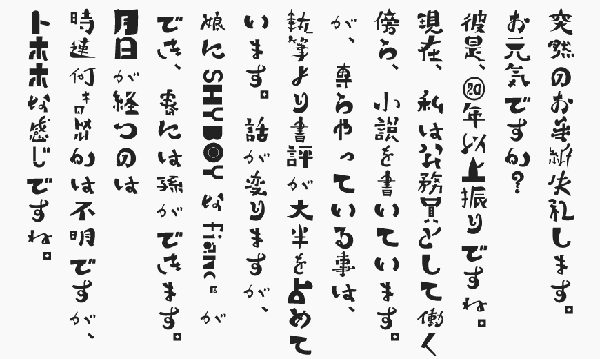 突然のお手紙失礼します。
お元気ですか？
彼是、⑳年以上振りですね。
現在、私は公務員として働く
傍ら、小説を書いています。
が、専らやっている事は、
執筆より書評が大半を占めて
います。話が変りますが、
娘に SHYBOY な が
でき、春には孫ができます。
月日が経つのは
時速何かは不明ですが、
トホホな感じですね。